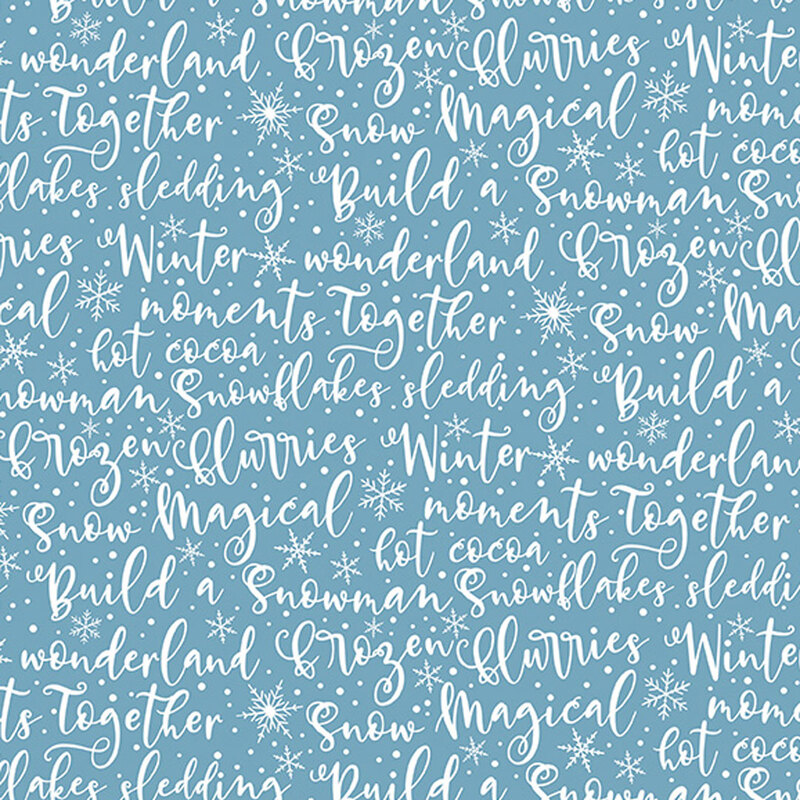 Build a Snowman Snowflakes
wonderland Frozen flurries Winter
ts Together Snow Magical moments
hot coco
flakes sledding Build a Snowman Sn
rries Winter wonderland Frozen flu
cal moments Together Snow Ma
hot cocoa
nowman Snowflakes sledding Build a
Frozen flurries Winter wonderlan
Snow Magical moments Together
hot cocoa
Build a Snowman Snowflakes sleddi
wonderland Frozen flurries Winte
ts Together Snow Magical mom
hot coco
flakes sledding Build a Snowman